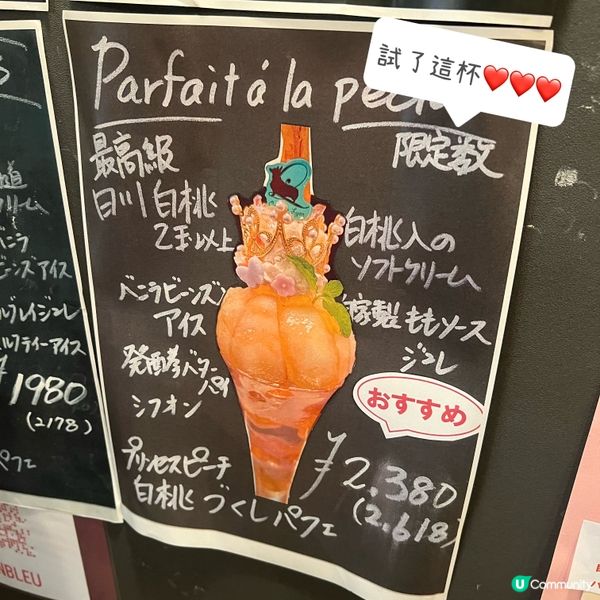 試了這杯❤️❤️❤️
Parfait á la
限定数
最高級
白川白桃
2玉以上
白桃入の
ソフトクリーム
ベニラビーンズ
アイス
自家製ももソース
ジュレ
発酵バター
シフオン
おすすめ
プリンセスピーチ
白桃づくしパフェ
¥2,380
(2,618)
アイス
¥1980
(2178)
パフェ
NBLEU
U Community